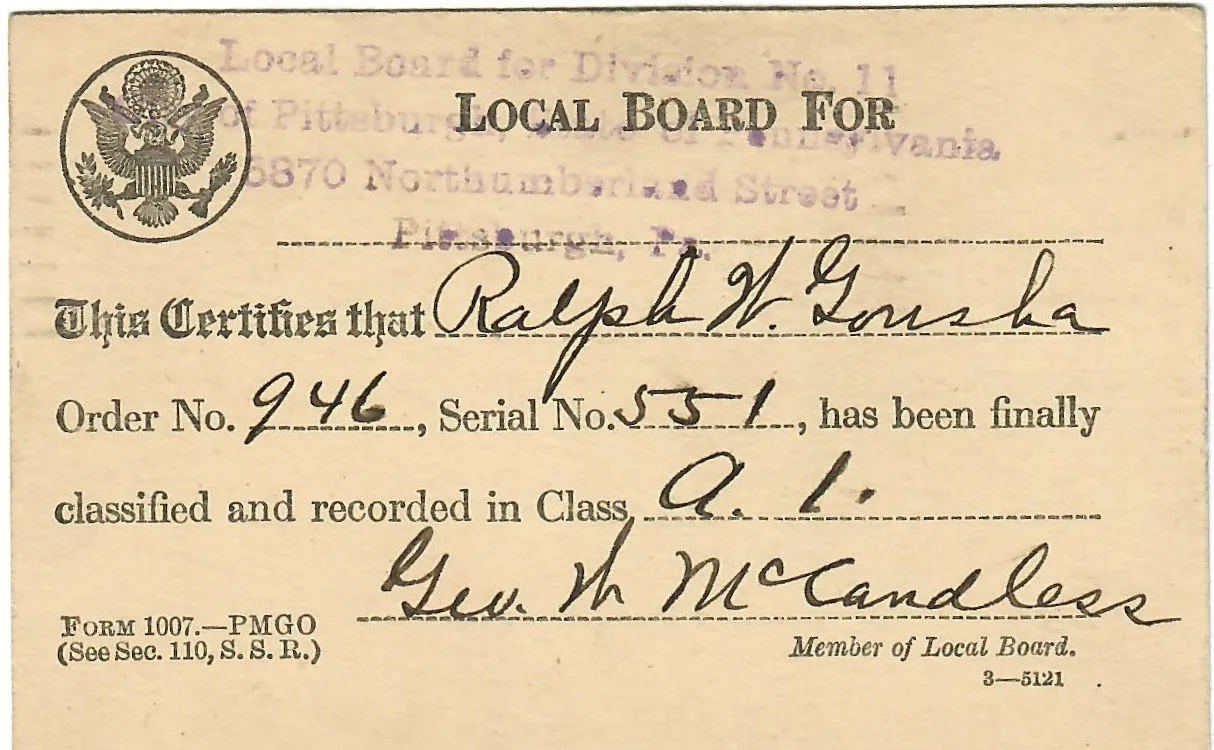 Local Board for Division No. 11
LOCAL BOARD FOR
of Pittsburgh, State of Pennsylvania
5870 Northumberland Street
Pittsburgh, Pa.
This Certifies that Ralph W. Gousha
Order No. 946, Serial No. 551, has been finally
classified and recorded in Class A. 1.
Geo. W McCandless
FORM 1007.—PMGO
(See Sec. 110, S. S. R.)
Member of Local Board.
3—5121